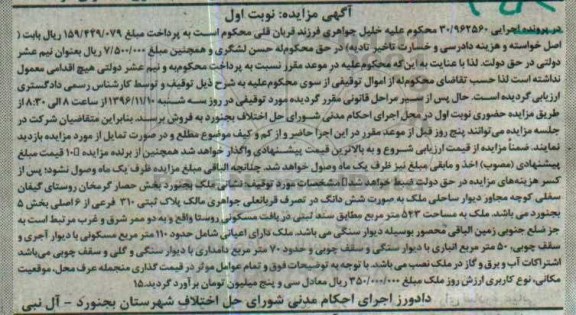 آگهی مزایده: نوبت اول
در پرونده اجرایی ۳۰/۹۶۲۵۶۰ محکوم علیه خلیل جواهری فرزند قربان قلی محکوم است به پرداخت مبلغ ۱۵۹/۴۴۹/۰۷۹ ریال بابت (
اصل خواسته و هزینه دادرسی و خسارت تاخیر تادیه) در حق محکوم‌له حسن لشگری و همچنین مبلغ ۷/۵۰۰/۰۰۰ ریال بعنوان نیم عشر
دولتی در حق دولت. لذا با عنایت به این‌که محکوم‌علیه در موعد مقرر نسبت به پرداخت محکوم‌به و نیم عشر دولتی هیچ اقدامی معمول
نداشته است لذا حسب تقاضای محکوم‌له از اموال توقیفی از سوی محکوم‌علیه به شرح ذیل توقیف و توسط کارشناس رسمی دادگستری
ارزیابی گردیده است. حال پس از سیر مراحل قانونی مقرر گردیده مورد توقیفی در روز سه شنبه ۱۳۹۶/۱۱/۱۰ از ساعت ۸ الی ۸:۳۰ از
طریق مزایده حضوری نوبت اول در محل اجرای احکام مدنی شورای حل اختلاف بجنورد به فروش برسد. بنابراین متقاضیان شرکت در
جلسه مزایده می‌توانند پنج روز قبل از موعد مقرر در این اجرا حاضر و از کم و کیف موضوع مطلع و در صورت تمایل از مورد مزایده بازدید
نمایند. ضمنأ مزایده از قیمت ارزیابی شروع و به بالاترین قیمت پیشنهادی واگذار خواهد شد همچنین از برنده مزایده ۱۰ قیمت مبلغ
پیشنهادی (مصوب) اخذ و مابقی مبلغ نیز ظرف یک ماه وصول خواهد شد. چنانچه الباقی مبلغ مزایده ظرف یک ماه وصول نشود؛ پس از
کسر هزینه‌های مزایده در حق دولت ضبط خواهد شد مشخصات مورد توقیف: نشانی ملک بجنورد بخش حصار گرمخان روستای گیفان
سفلی کوچه مجاور دیوار ساحلی ملک به صورت شش دانگ در تصرف قربانعلی جواهری مالک پلاک ثبتی ۳۱۰ فرعی از ۶ اصلی بخش ۵
بجنورد می باشد. ملک به مساحت ۵۲۳ متر مربع مطابق سند ثبتی در بافت مسکونی روستا واقع و به دو ممر شرق و غرب مرتبط است به
جز ضلع جنوبی زمین الباقی محصور بوسیله دیوار سنگی می باشد. ملک دارای اعیانی شامل حدود ۱۱۰ متر مربع مسکونی با دیوار آجری و
سقف چوبی، ۵۰ متر مربع انباری با دیوار سنگی و سقف چوبی و حدود ۷۰ متر مربع دامداری با دیوار سنگی و گلی و سقف چوبی می‌باشد
اشتراکات آب و برق و گاز در ملک نصب می باشد. با توجه به توضیحات فوق و تمام عوامل موثر در قیمت گذاری منجمله عرف محل، موقعیت
مکانی، نوع کاربری ارزش روز ملک مبلغ ۳۵۰/۰۰۰/۰۰۰ ریال معادل سی و پنج میلیون تومان برآورد گردید.۱۵
دادورز اجرای احکام مدنی شورای حل اختلاف شهرستان بجنورد - آل نبی